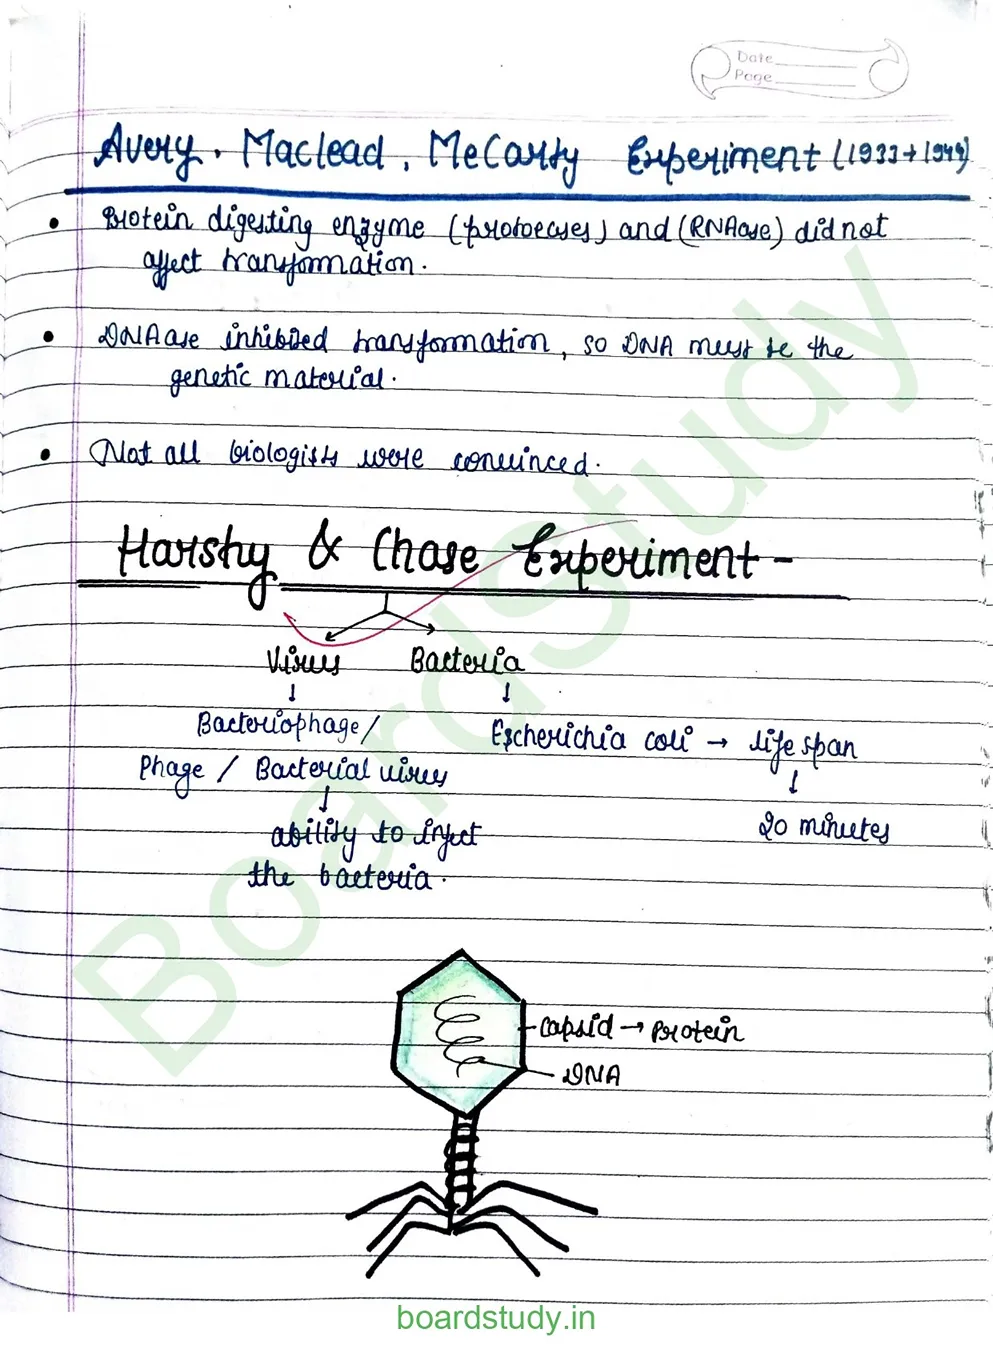 Date
Page
Avery. Maclead, McCarty Experiment (1933 → 1944)
• Protein digesting enzyme (protoecases) and (RNAase) did not
affect transformation.
• DNAase inhibited transformation, so DNA must be the
genetic material.
• Not all biologists were convinced.
Harshy & Chase Experiment -
Virus Bacteria
Bacteriophage/ Escherichia coli → life span
Phage / Bacterial virus
20 minutes
ability to inject
the bacteria.
Capsid → Protein
DNA
BoardStudy
boardstudy.in